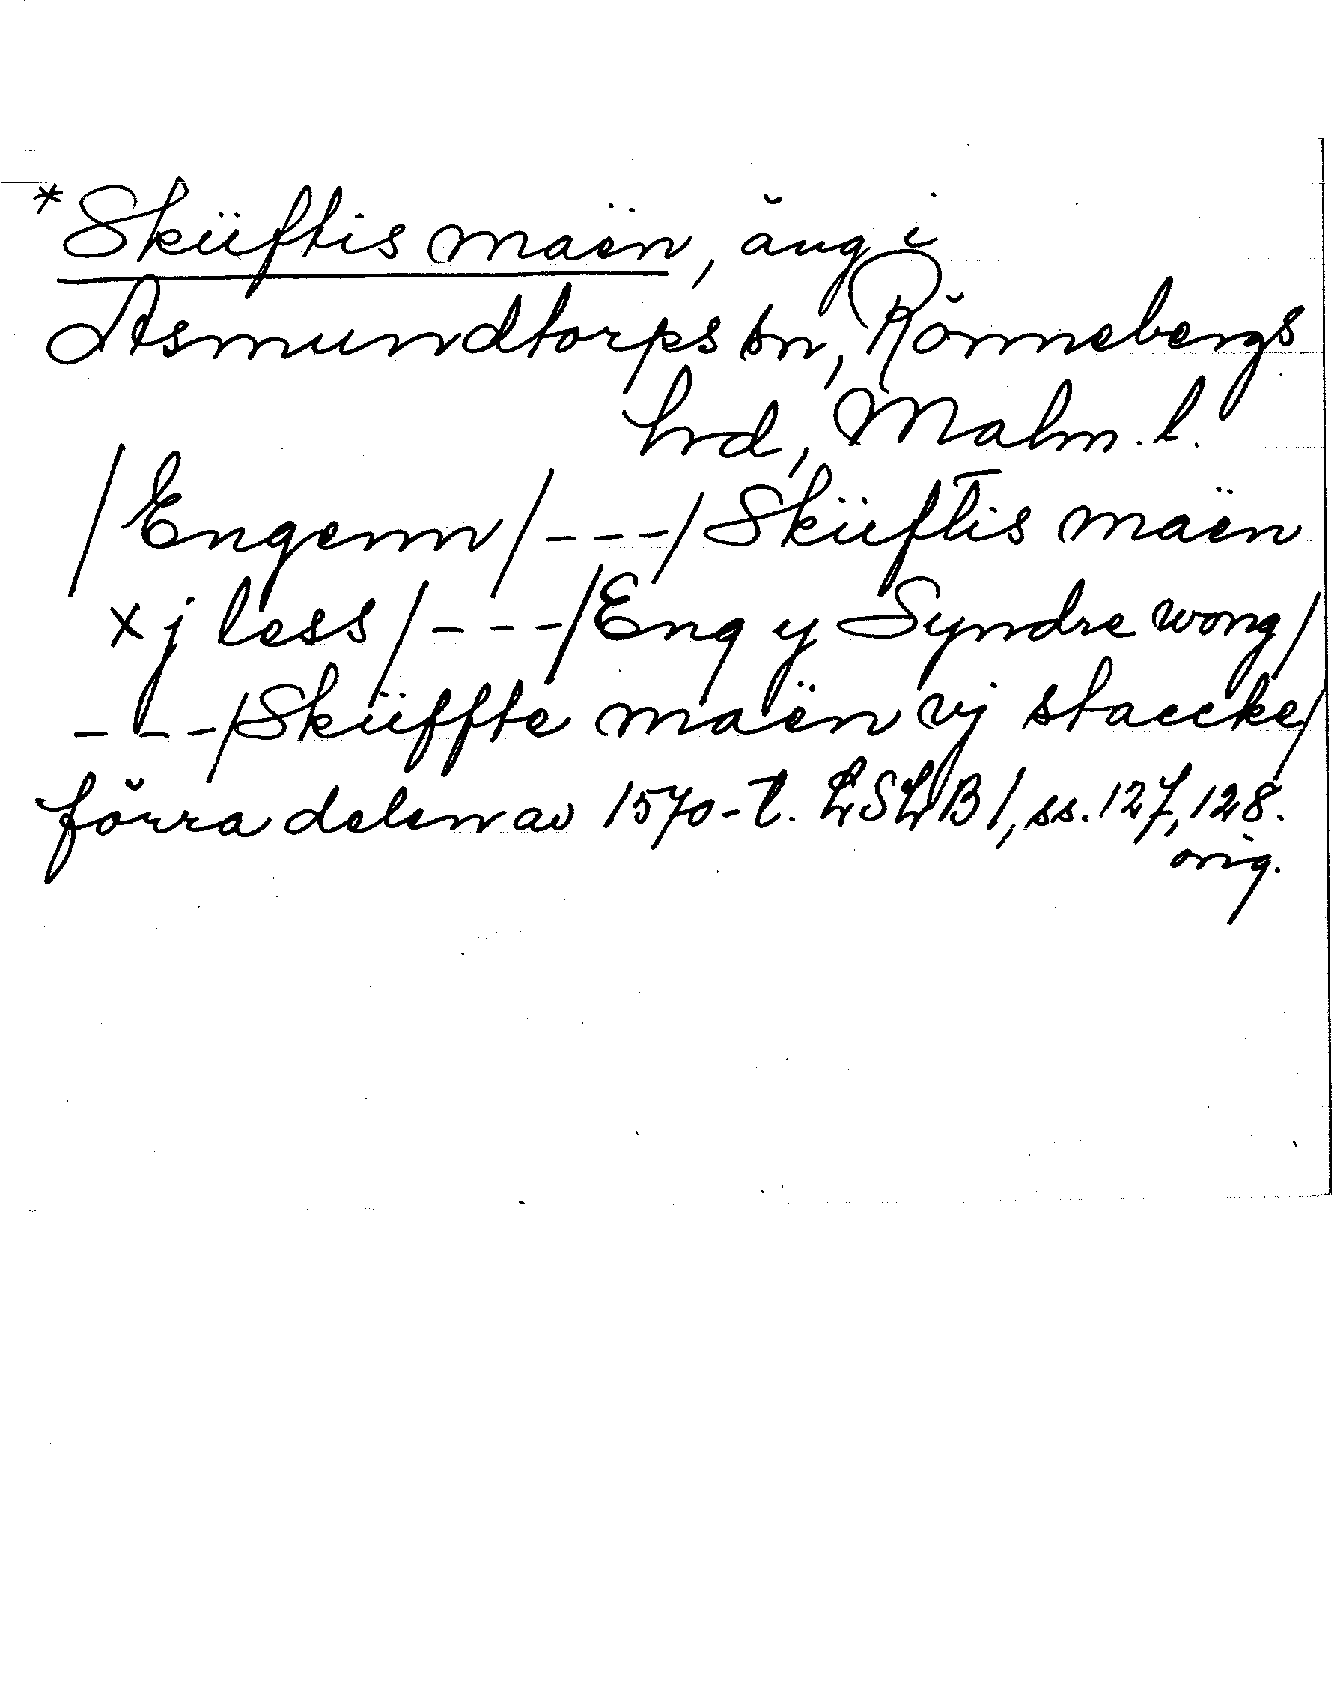 *Sküftis maën, äng i
Asmundtorps sn, Rönnebergs
hrd, Malm. l.
/Engenn/---/Sküftis maën
xj less/---/Eng y Syndre wong/
---/Sküffte maën vj staecke/
förra delen av 1570-t. LSLB 1, ss. 127, 128.
orig.